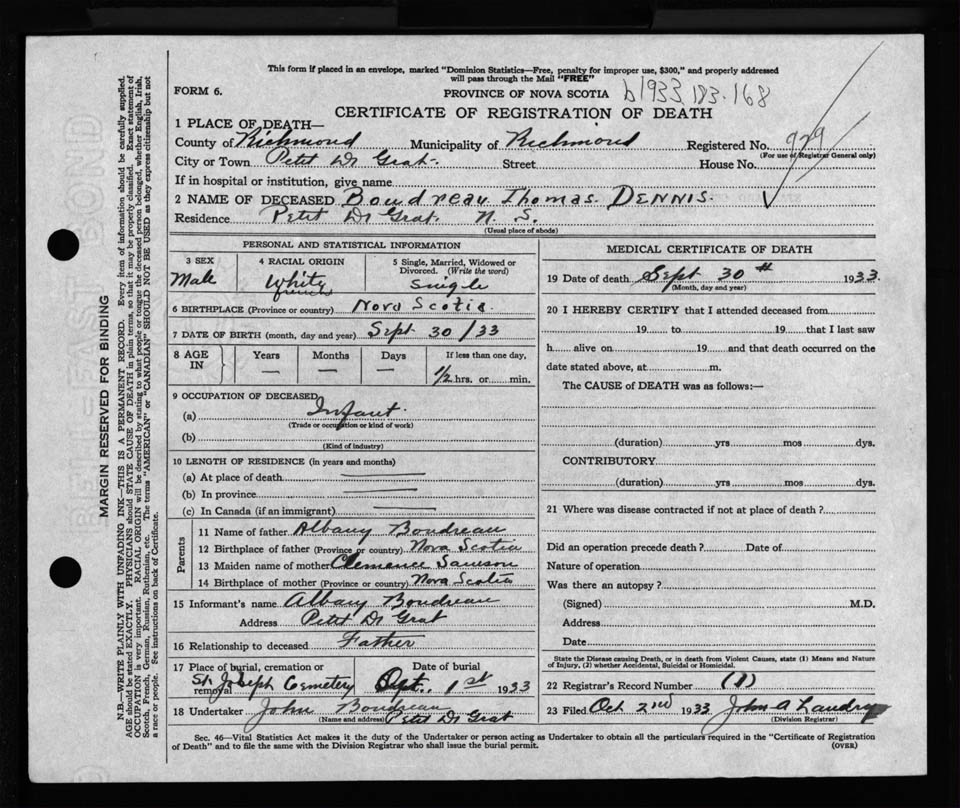 This form if placed in an envelope, marked "Dominion Statistics—Free, penalty for improper use, $300," and properly addressed
will pass through the Mail "FREE"
FORM 6.
PROVINCE OF NOVA SCOTIA b1933.183.168
CERTIFICATE OF REGISTRATION OF DEATH
1 PLACE OF DEATH—
County of Richmond Municipality of Richmond Registered No. 929
(For use of Registrar General only)
City or Town Petit De Grat. Street House No.
If in hospital or institution, give name
2 NAME OF DECEASED Boudreau Thomas DENNIS.
Residence Petit De Grat. N. S.
(Usual place of abode)
PERSONAL AND STATISTICAL INFORMATION
3 SEX
Male
4 RACIAL ORIGIN
White
French
5 Single, Married, Widowed or
Divorced. (Write the word)
Single
6 BIRTHPLACE (Province or country) Nova Scotia.
7 DATE OF BIRTH (month, day and year) Sept 30/33
8 AGE
IN
Years
—
Months
—
Days
—
If less than one day,
1/2 hrs. or min.
9 OCCUPATION OF DECEASED
(a) Infant.
(Trade or occupation or kind of work)
(b)
(Kind of industry)
10 LENGTH OF RESIDENCE (in years and months)
(a) At place of death
(b) In province
(c) In Canada (if an immigrant)
Parents
11 Name of father Albany Boudreau
12 Birthplace of father (Province or country) Nova Scotia
13 Maiden name of mother Clemence Samson
14 Birthplace of mother (Province or country) Nova Scotia
15 Informant's name Albany Boudreau
Address Petit De Grat
16 Relationship to deceased Father
17 Place of burial, cremation or
removal St. Joseph Cemetery
Date of burial
Oct. 1st 1933
18 Undertaker John Boudreau
(Name and address) Petit De Grat
MEDICAL CERTIFICATE OF DEATH
19 Date of death Sept 30th 1933.
(Month, day and year)
20 I HEREBY CERTIFY that I attended deceased from
19 to 19 that I last saw
h alive on 19 and that death occurred on the
date stated above, at m.
The CAUSE of DEATH was as follows:—
(duration) yrs mos dys.
CONTRIBUTORY
(duration) yrs mos dys.
21 Where was disease contracted if not at place of death?
Did an operation precede death? Date of
Nature of operation
Was there an autopsy?
(Signed) M.D.
Address
Date
State the Disease causing Death, or in death from Violent Causes, state (1) Means and Nature
of Injury, (2) whether Accidental, Suicidal or Homicidal.
22 Registrar's Record Number (1)
23 Filed Oct 2nd 1933 John A Landry
(Division Registrar)
Sec. 46—Vital Statistics Act makes it the duty of the Undertaker or person acting as Undertaker to obtain all the particulars required in the "Certificate of Registration
of Death" and to file the same with the Division Registrar who shall issue the burial permit.
(OVER)
MARGIN RESERVED FOR BINDING
N.B.—WRITE PLAINLY WITH UNFADING INK—THIS IS A PERMANENT RECORD. Every item of information should be carefully supplied.
AGE should be stated EXACTLY. PHYSICIANS should STATE CAUSE OF DEATH in plain terms, so that it may be properly classified. Exact statement of
OCCUPATION is very important. RACIAL ORIGIN will be described by stating to what people or tongue the deceased person belonged, whether English, Irish,
Scotch, French, German, Russian, Ruthenian, etc. The terms "AMERICAN" or "CANADIAN" SHOULD NOT BE USED as they express citizenship but not
a race or people. See instructions on back of Certificate.